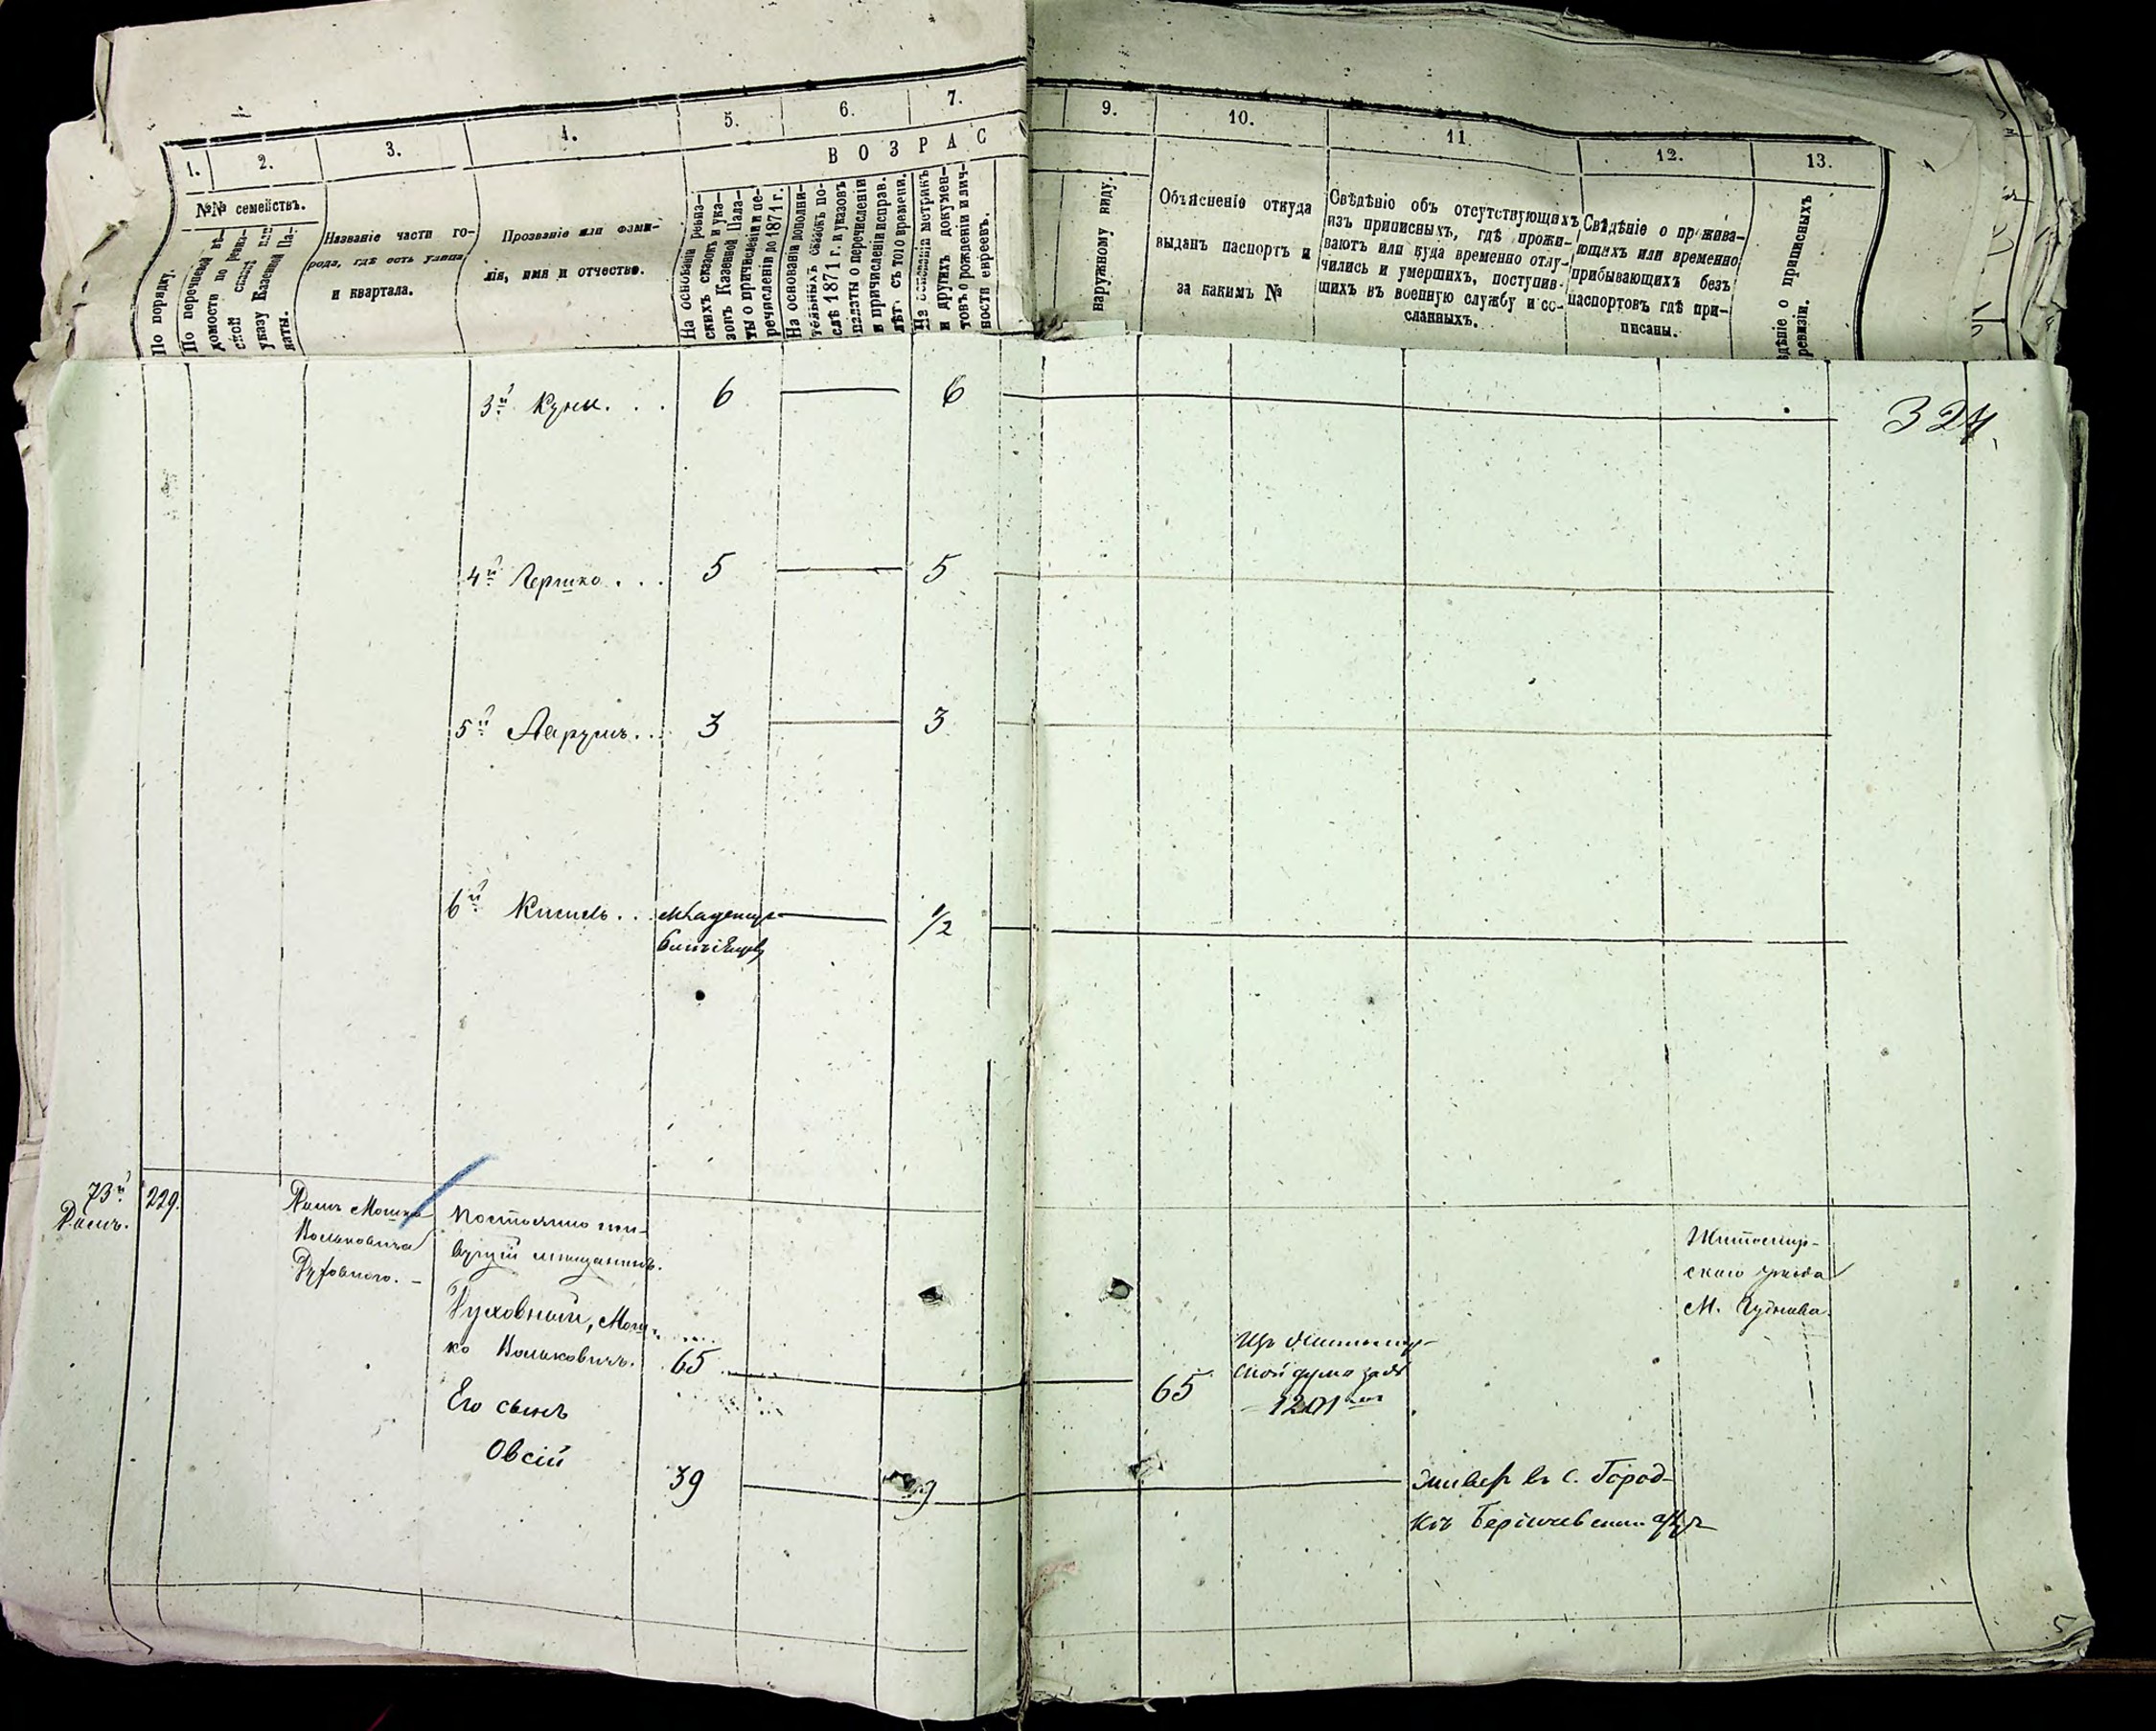 1.
2.
3.
4.
5.
6.
7.
9.
10.
11.
12.
13.
ВОЗРАС
№№ семействъ.
По порядку.
По перечневой вѣ-
домости по ревиз-
ской сказкѣ или
указу Казенной Па-
латы.
Названіе части го-
рода, гдѣ есть улица
и квартала.
Прозваніе или фами-
лія, имя и отчество.
На основаніи ревиз-
скихъ сказокъ и ука-
зовъ Казенной Пала-
ты о причисленіи и пе-
речисленіи до 1871 г.
На основаніи дополни-
тельныхъ сказокъ по-
слѣ 1871 г. и указовъ
палаты о перечисленіи
и причисленіи исправ.
лѣт. съ того времени.
На основаніи метрикъ
и другихъ докумен-
товъ о рожденіи и лич-
ности евреевъ.
наружному виду.
Объясненіе откуда
выданъ паспортъ и
за какимъ №
Свѣдѣніе объ отсутствующихъ
изъ приписныхъ, гдѣ прожи-
ваютъ или куда временно отлу-
чились и умершихъ, поступив-
шихъ въ военную службу и со-
сланныхъ.
Свѣдѣніе о прожива-
ющихъ или временно
прибывающихъ безъ
паспортовъ гдѣ при-
писаны.
дѣніе о приписныхъ
ревизіи.
324
3й Куны. . . 6 6
4й Гершко . . . 5 5
5й Лерумъ. . . 3 3
6й Кисиль. . . 1/2
73й
Домъ.
229.
Домъ Мошка
Вольковича
Духовного. –
Постоянно жи-
вущій мѣщанинъ.
Духовный, Мош-
ко Вольковичъ. 65 65
Изъ Житомир-
ской думы за №
1201
Житомир-
скаго уѣзда
М. Чуднова
Его сынъ
Овсій 39
Живетъ въ С. Город-
кѣ Бердичевскаго